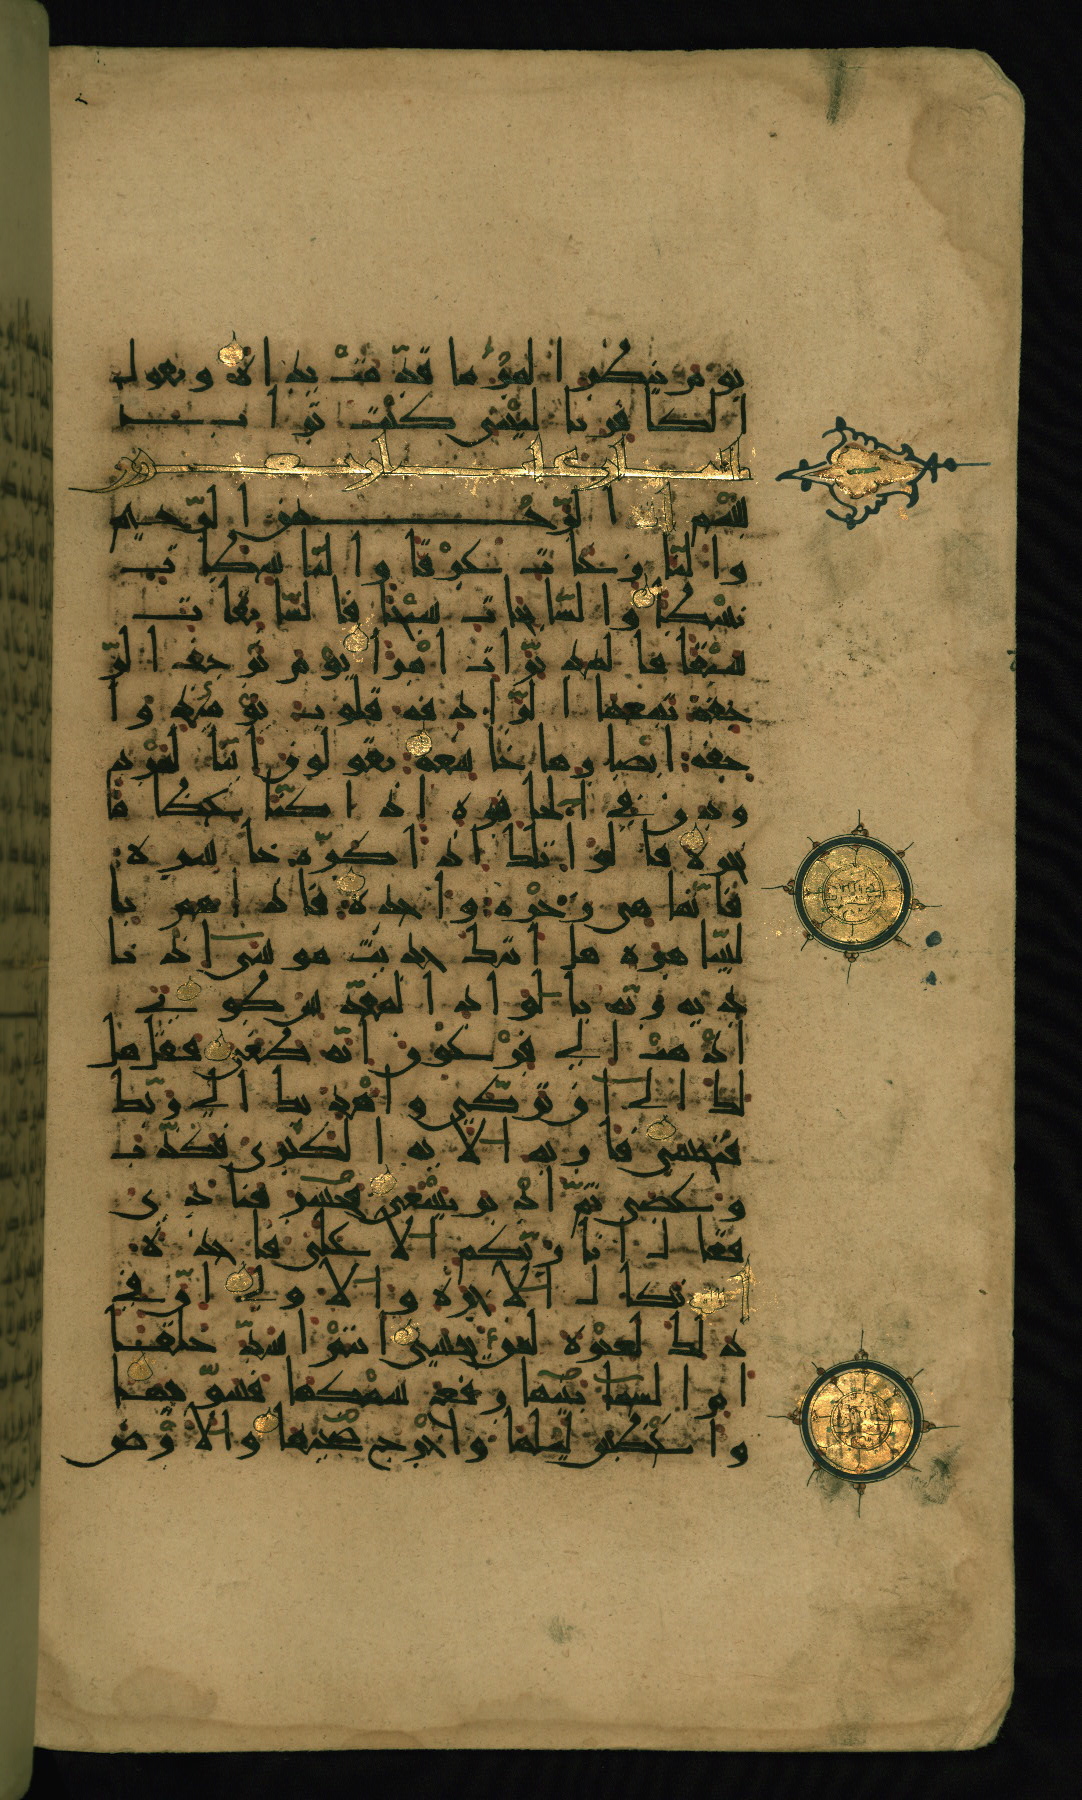 يوم ينظر المرء ما قدمت يداه ويقول
الكافر يا ليتني كنت ترابا
النازعات اربعون
بسم الله الرحمن الرحيم
والنازعات غرقا والناشطات
نشطا والسابحات سبحا فالسابقات
سبقا فالمدبرات امرا يوم ترجف الرا
جفة تتبعها الرادفة قلوب يومئذ وا
جفة ابصارها خاشعة يقولون ائنا لمرد
ودون في الحافرة اذا كنا عظاما
نخرة قالوا تلك اذا كرة خاسرة
فانما هي زجرة واحدة فاذا هم با
لساهرة هل اتاك حديث موسى اذ نا
ديه ربه بالواد المقدس طوى
اذهب الى فرعون انه طغى فقل هل
لك الى ان تزكى واهديك الى ربك
فتخشى فاريه الاية الكبرى فكذب
وعصى ثم ادبر يسعى فحشر فنادى
فقال انا ربكم الاعلى فاخذه
الله نكال الاخرة والاولى ان في
ذلك لعبرة لمن يخشى اانتم اشد خلقا
ام السما بنيها رفع سمكها فسويها
واغطش ليلها واخرج ضحيها والارض